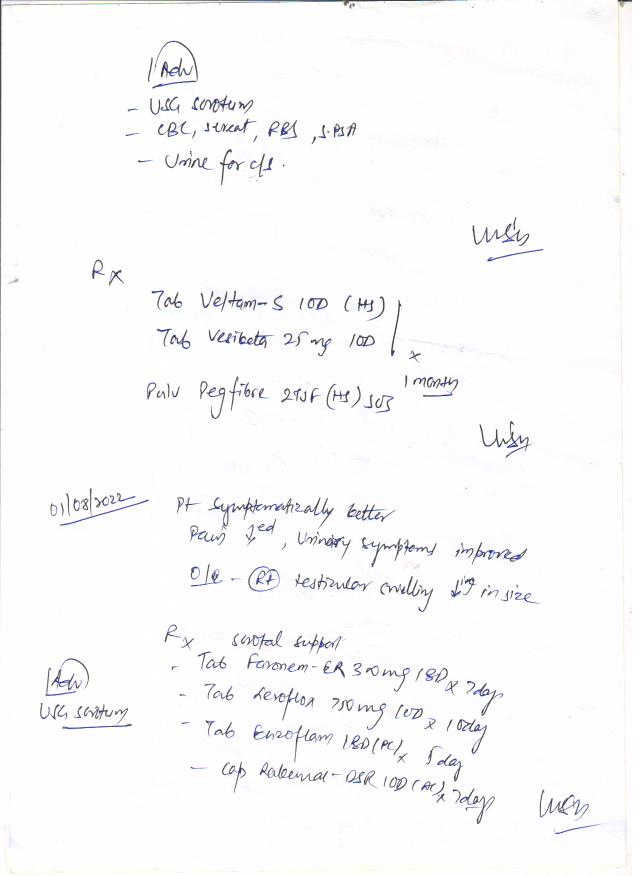 Adv
- USG scrotum
- CBC, sercat, RBS, S.PSA
- Urine for c/s.
Rx
Tab Veltam-S 1OD (HS)
Tab Vesibeta 25 mg 1OD
x
1 month
Pulv Pegfibre 2TSF (HS) SOS
01/08/2022
Pt symptomatically better
Pain ↓ed, Urinary symptoms improved
O/e - (Rt) testicular swelling ↓ing in size
Rx scrotal support
- Tab Faronem-ER 300mg 1BD x 7day
Adv
USG scrotum
- Tab Levoflox 750mg 1OD x 10day
- Tab Enzoflam 1BD (PC) x 5 day
- Cap -DSR 1OD (AC) x 7days